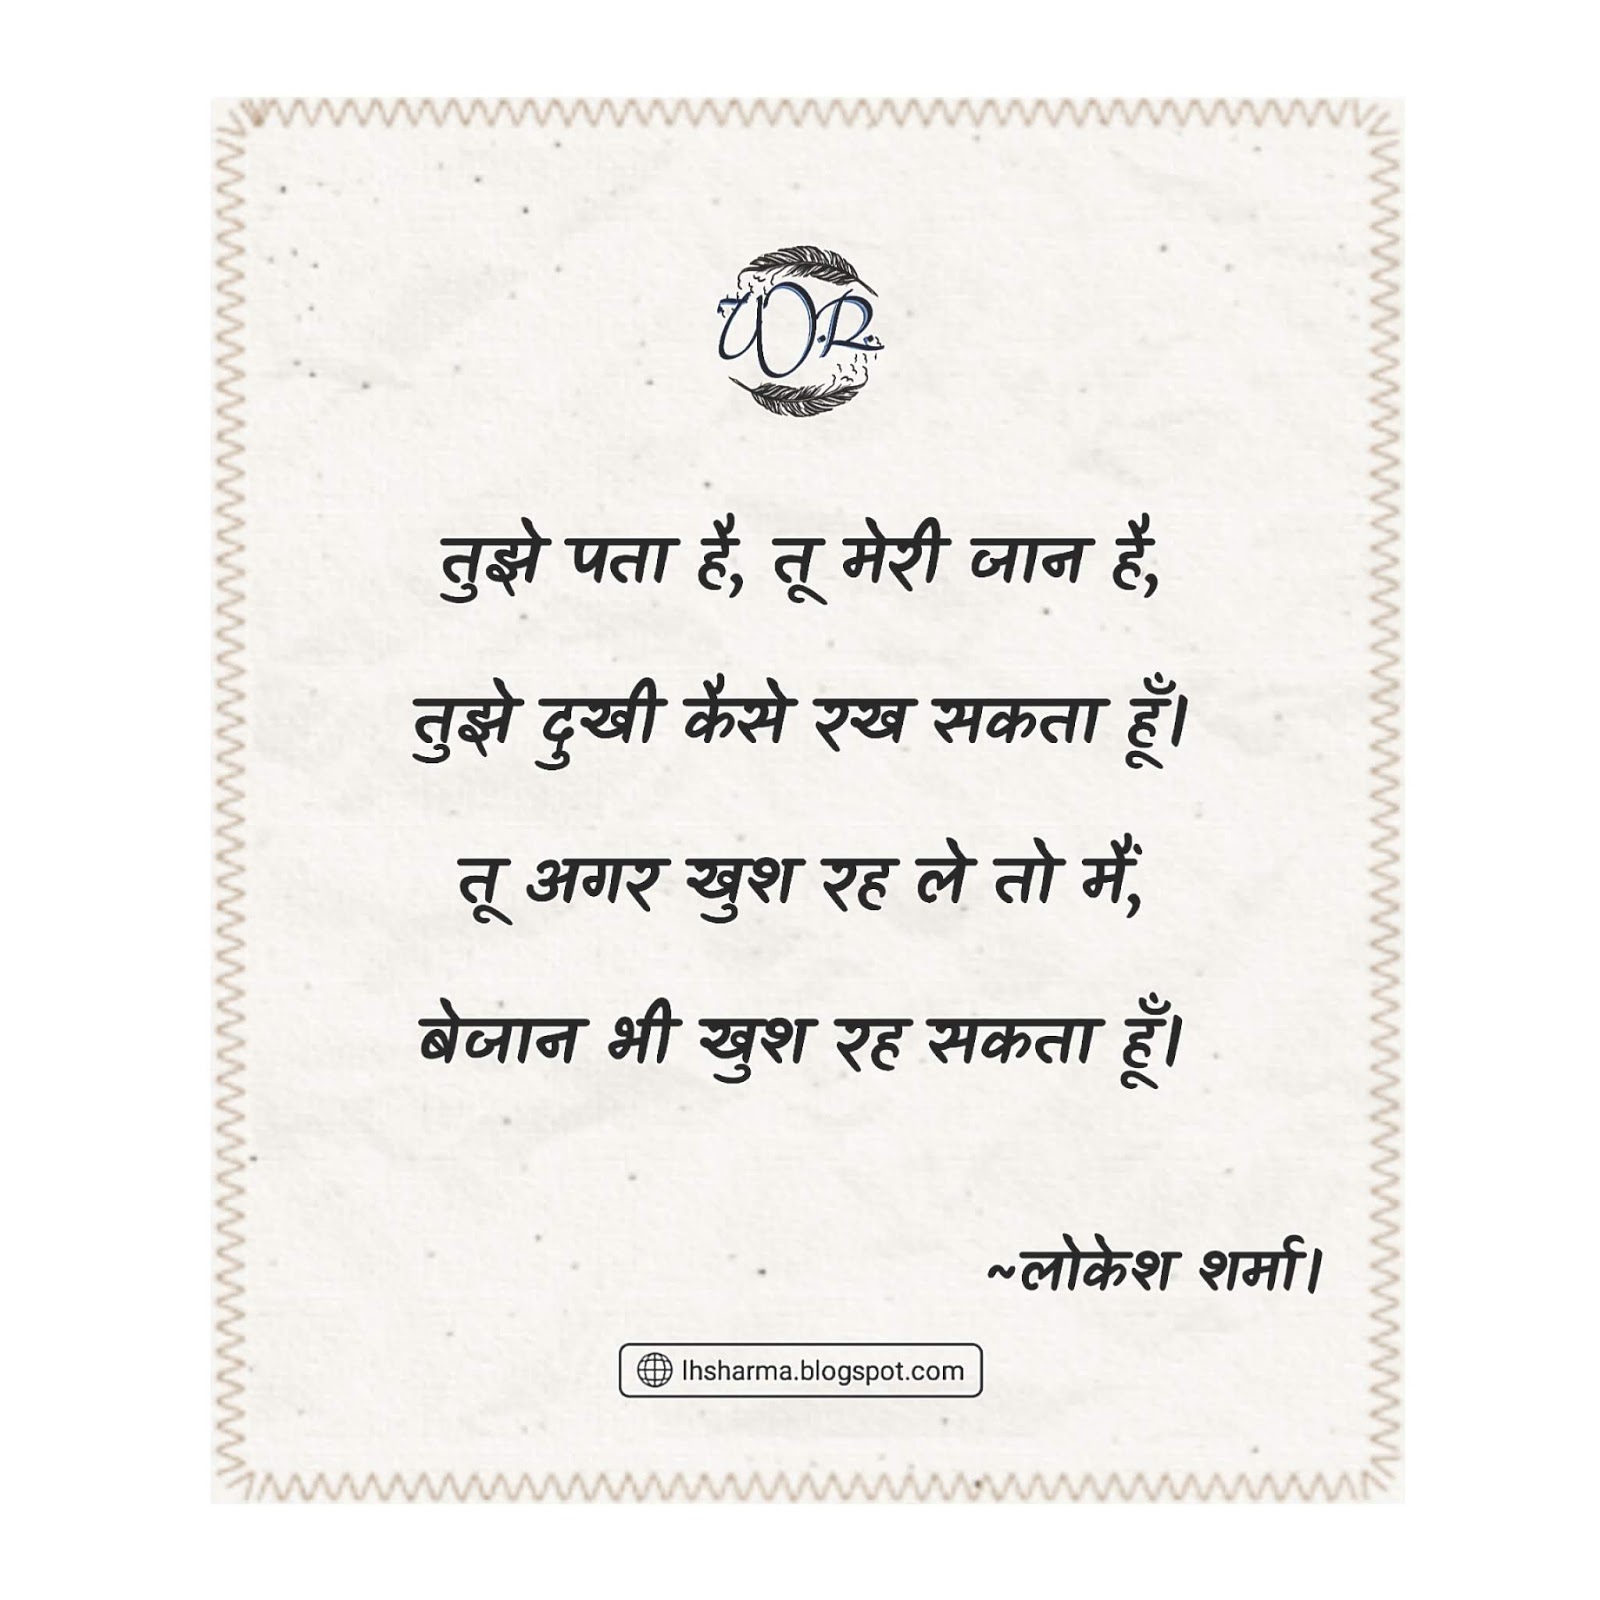 W.R.
तुझे पता है, तू मेरी जान है,
तुझे दुखी कैसे रख सकता हूँ।
तू अगर खुश रह ले तो मैं,
बेजान भी खुश रह सकता हूँ।
~लोकेश शर्मा।
lhsharma.blogspot.com